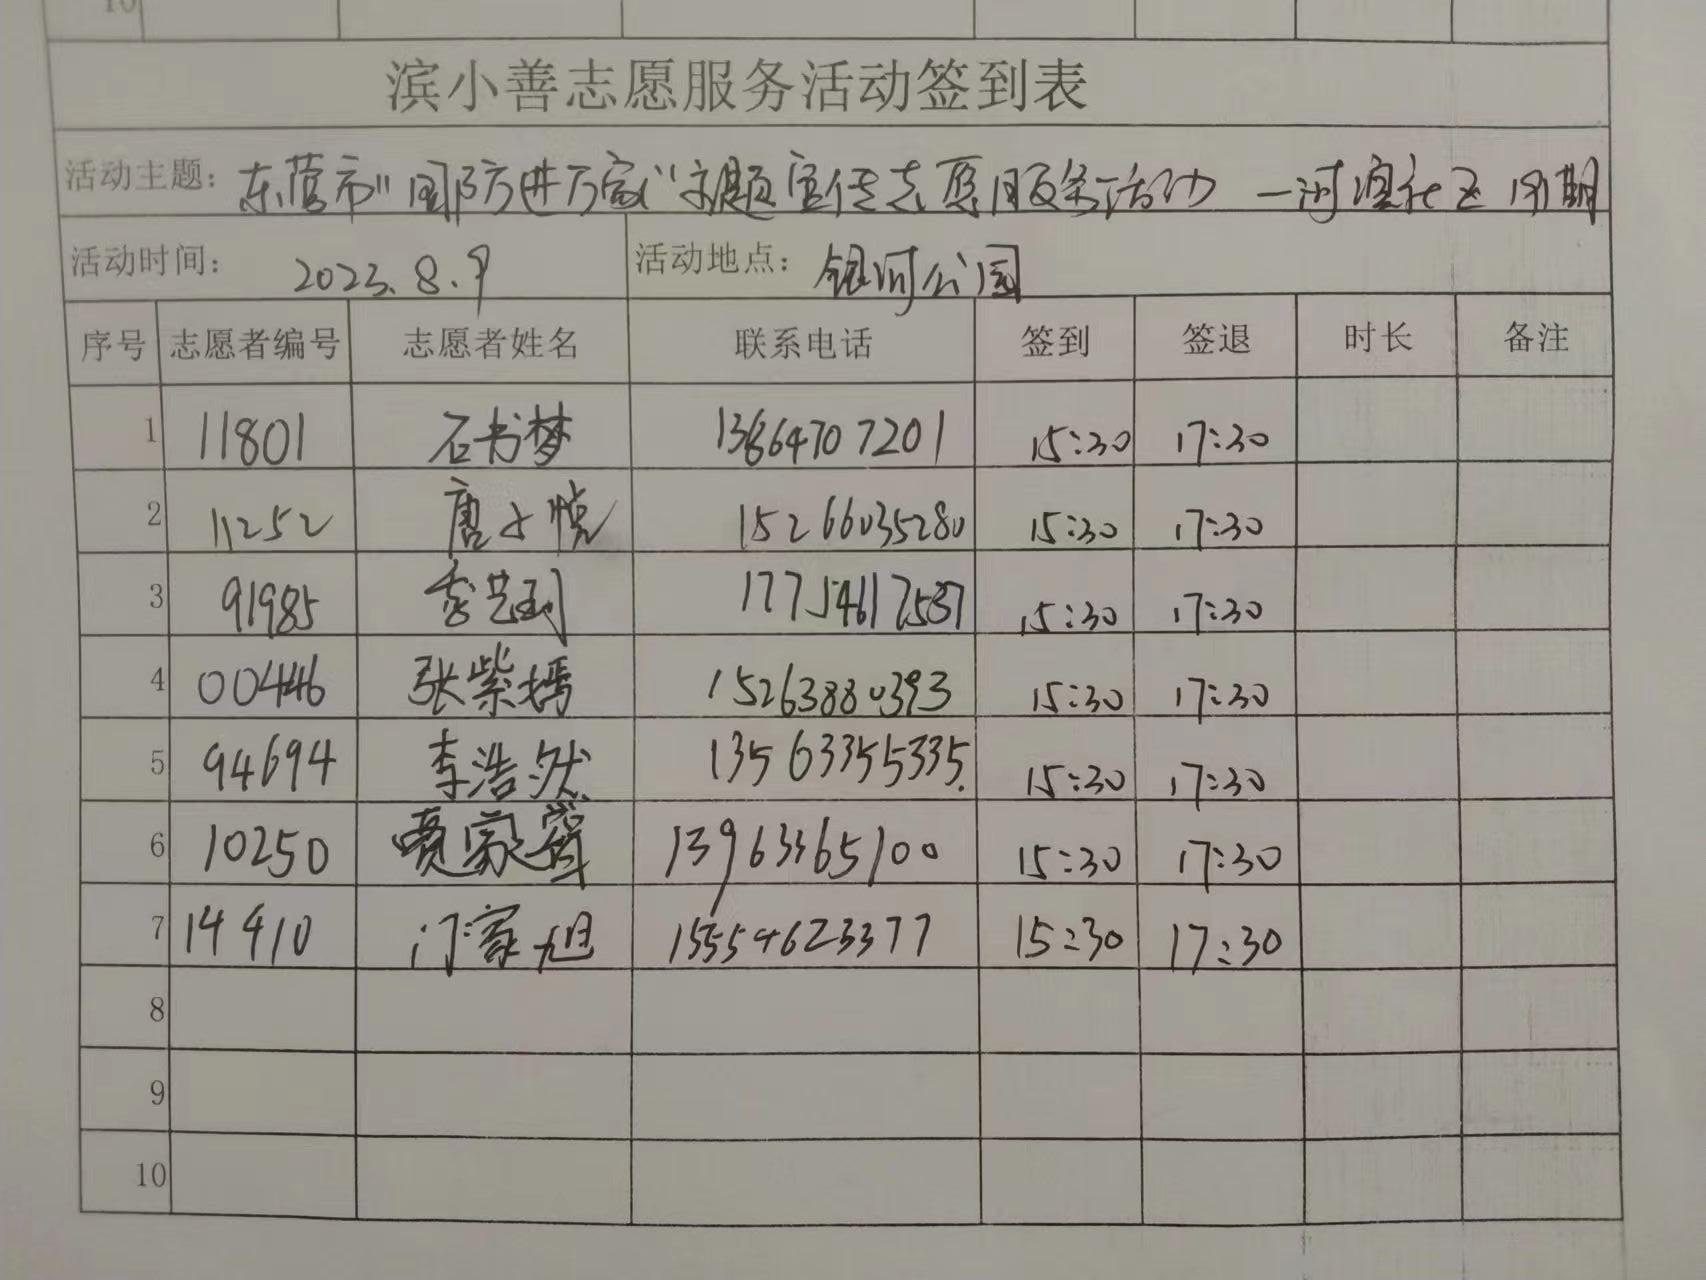 10
滨小善志愿服务活动签到表
活动主题：东营市"国防进万家"主题宣传志愿服务活动 一河滨社区 19期
活动时间：2023.8.9 活动地点：银河公园
序号 志愿者编号 志愿者姓名 联系电话 签到 签退 时长 备注
1 11801 石书梦 13864707201 15:30 17:30
2 11252 唐小悦 15266035280 15:30 17:30
3 91985 17754617537 15:30 17:30
4 00446 张紫嫣 15263880393 15:30 17:30
5 94694 李浩然 13563355335. 15:30 17:30
6 10250 贾家 13963365100 15:30 17:30
7 14410 门家旭 15554623377 15:30 17:30
8
9
10